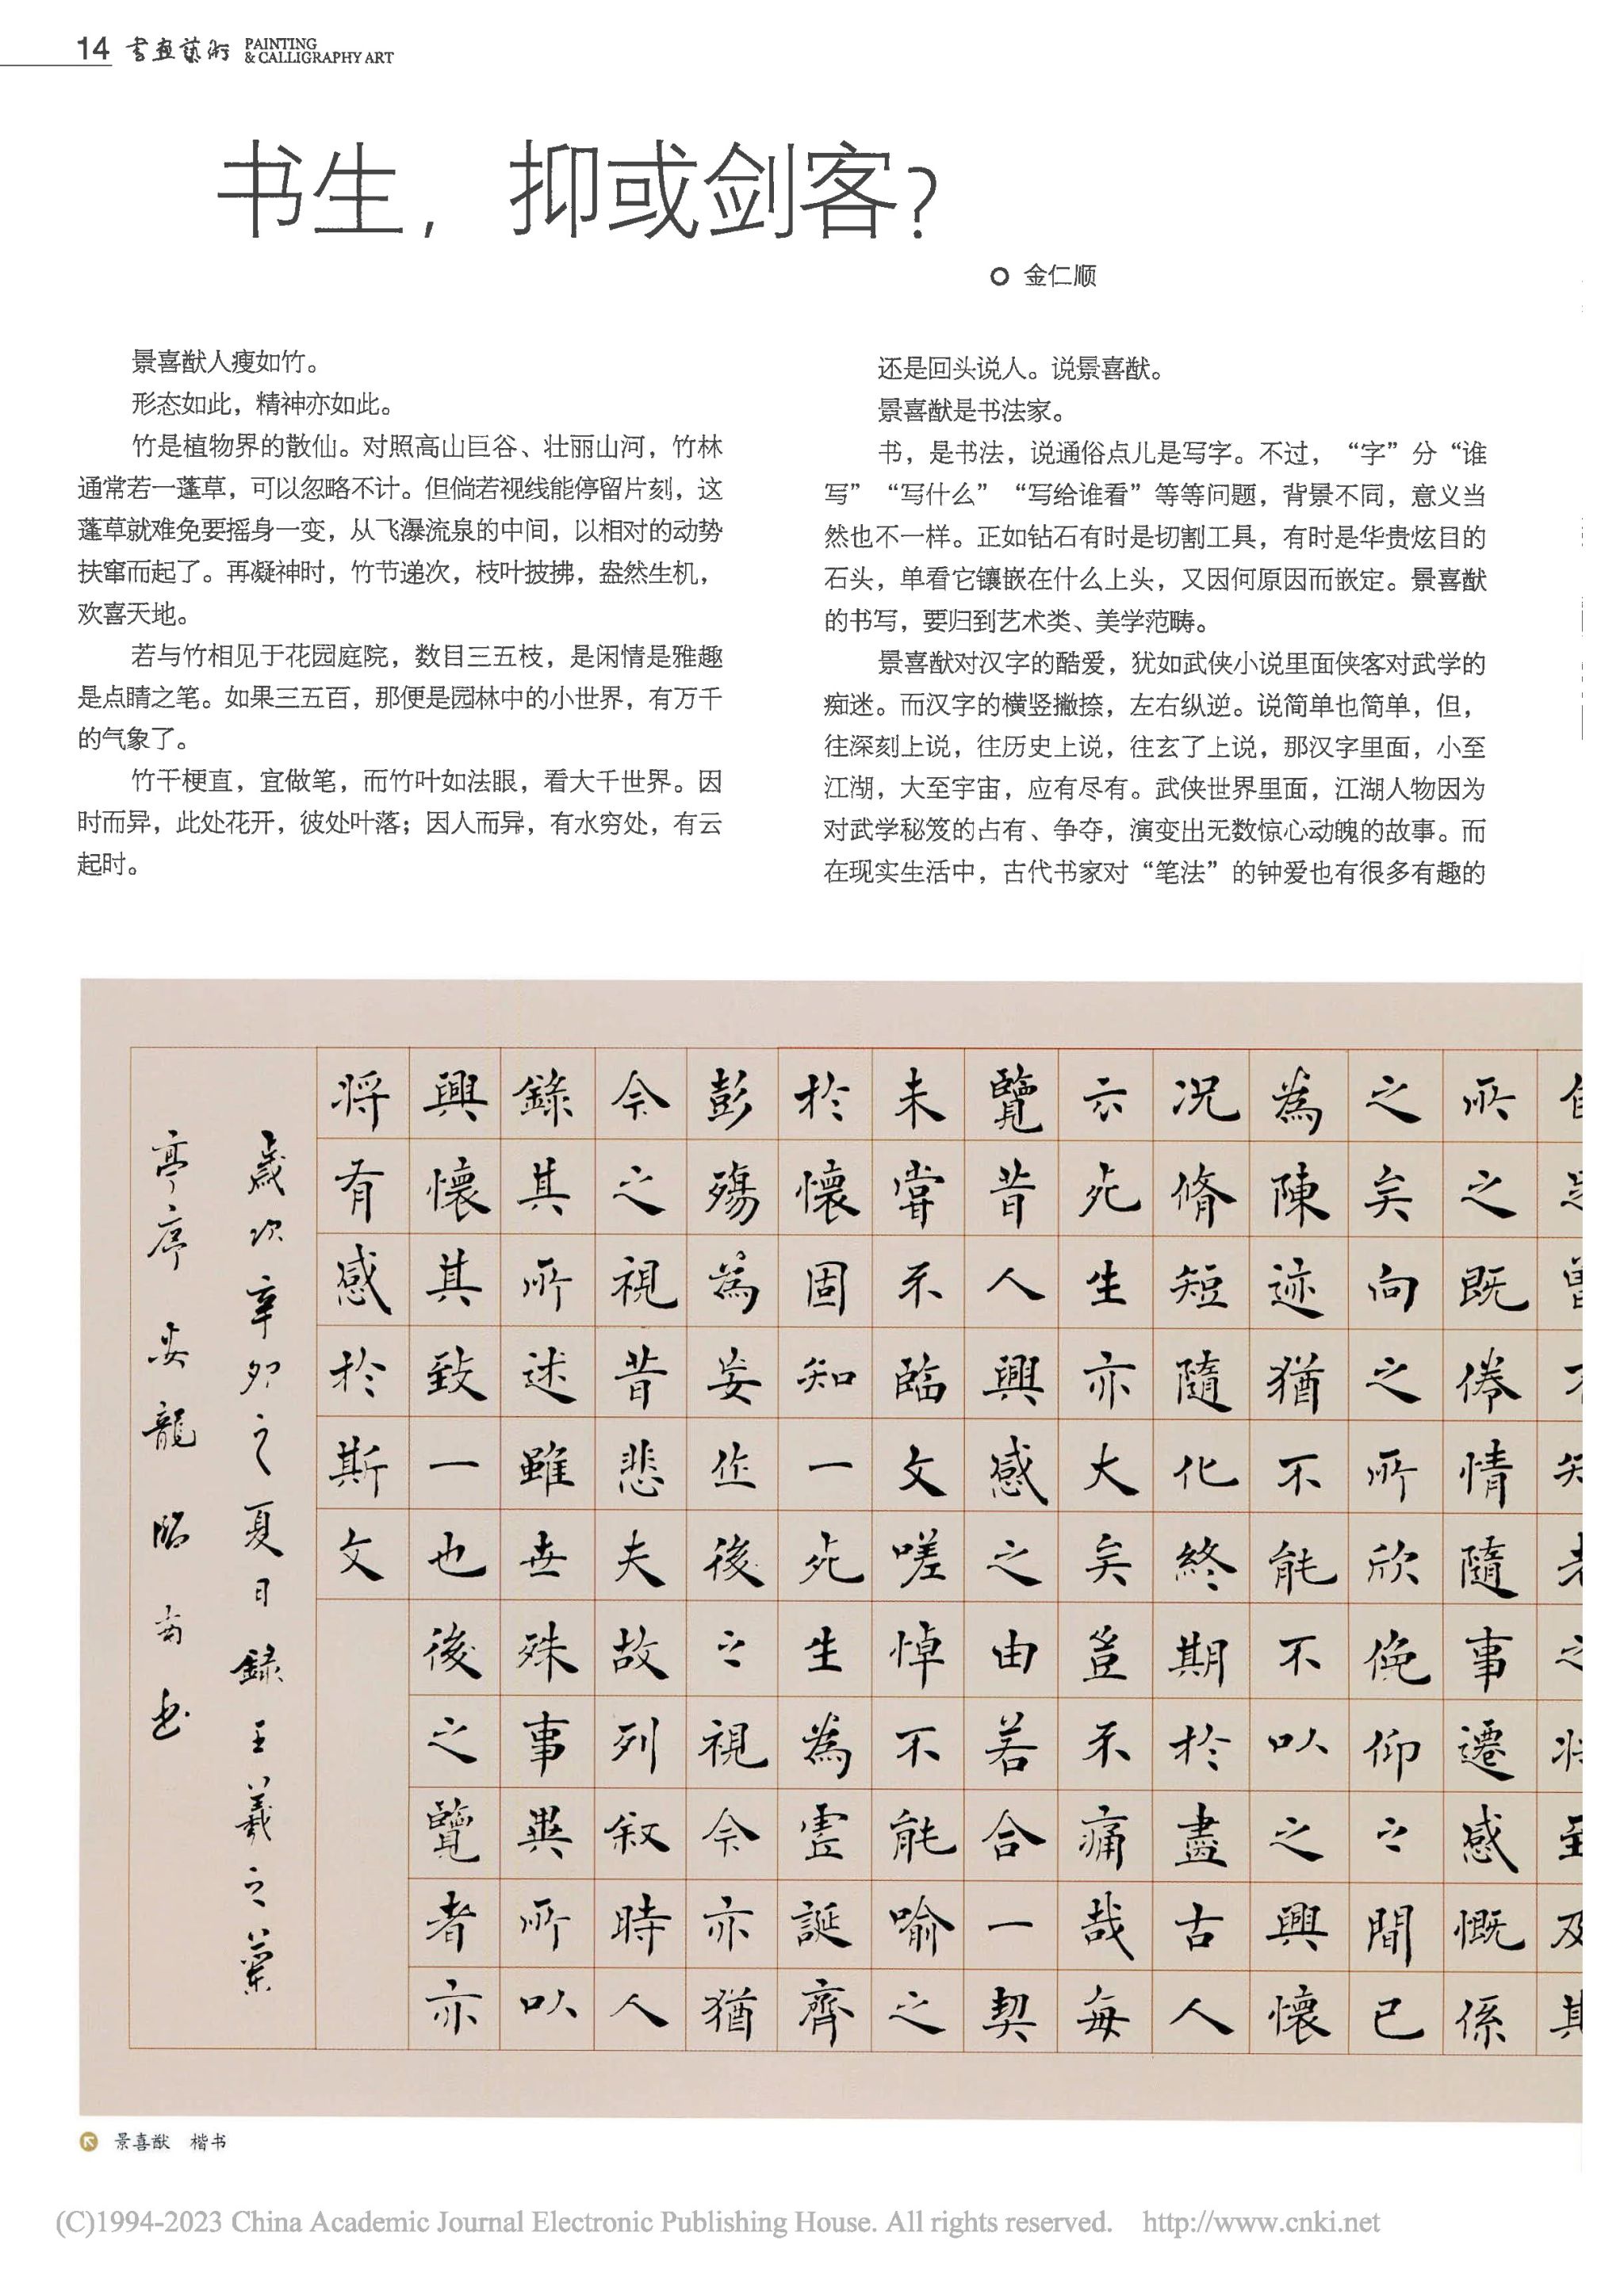 14 書画藝術 PAINTING
& CALLIGRAPHY ART
书生，抑或剑客？
金仁顺
景喜猷人瘦如竹。
形态如此，精神亦如此。
竹是植物界的散仙。对照高山巨谷、壮丽山河，竹林
通常若一蓬草，可以忽略不计。但倘若视线能停留片刻，这
蓬草就难免要摇身一变，从飞瀑流泉的中间，以相对的动势
扶窜而起了。再凝神时，竹节递次，枝叶披拂，盎然生机，
欢喜天地。
若与竹相见于花园庭院，数目三五枝，是闲情是雅趣
是点睛之笔。如果三五百，那便是园林中的小世界，有万千
的气象了。
竹干梗直，宜做笔，而竹叶如法眼，看大千世界。因
时而异，此处花开，彼处叶落；因人而异，有水穷处，有云
起时。
还是回头说人。说景喜猷。
景喜猷是书法家。
书，是书法，说通俗点儿是写字。不过，“字”分“谁
写”“写什么”“写给谁看”等等问题，背景不同，意义当
然也不一样。正如钻石有时是切割工具，有时是华贵炫目的
石头，单看它镶嵌在什么上头，又因何原因而嵌定。景喜猷
的书写，要归到艺术类、美学范畴。
景喜猷对汉字的酷爱，犹如武侠小说里面侠客对武学的
痴迷。而汉字的横竖撇捺，左右纵逆。说简单也简单，但，
往深刻上说，往历史上说，往玄了上说，那汉字里面，小至
江湖，大至宇宙，应有尽有。武侠世界里面，江湖人物因为
对武学秘笈的占有、争夺，演变出无数惊心动魄的故事。而
在现实生活中，古代书家对“笔法”的钟爱也有很多有趣的
所之既倦情隨事遷感慨係
之矣向之所欣俛仰之間已
為陳迹猶不能不以之興懷
况脩短隨化終期於盡古人
云死生亦大矣豈不痛哉每
覽昔人興感之由若合一契
未嘗不臨文嗟悼不能喻之
於懷固知一死生為虛誕齊
彭殤為妄作後之視今亦猶
今之視昔悲夫故列叙時人
錄其所述雖世殊事異所以
興懷其致一也後之覽者亦
将有感於斯文
歲次辛卯之夏日録王羲之蘭
亭序 龍 書
景喜猷 楷书
(C)1994-2023 China Academic Journal Electronic Publishing House. All rights reserved. http://www.cnki.net